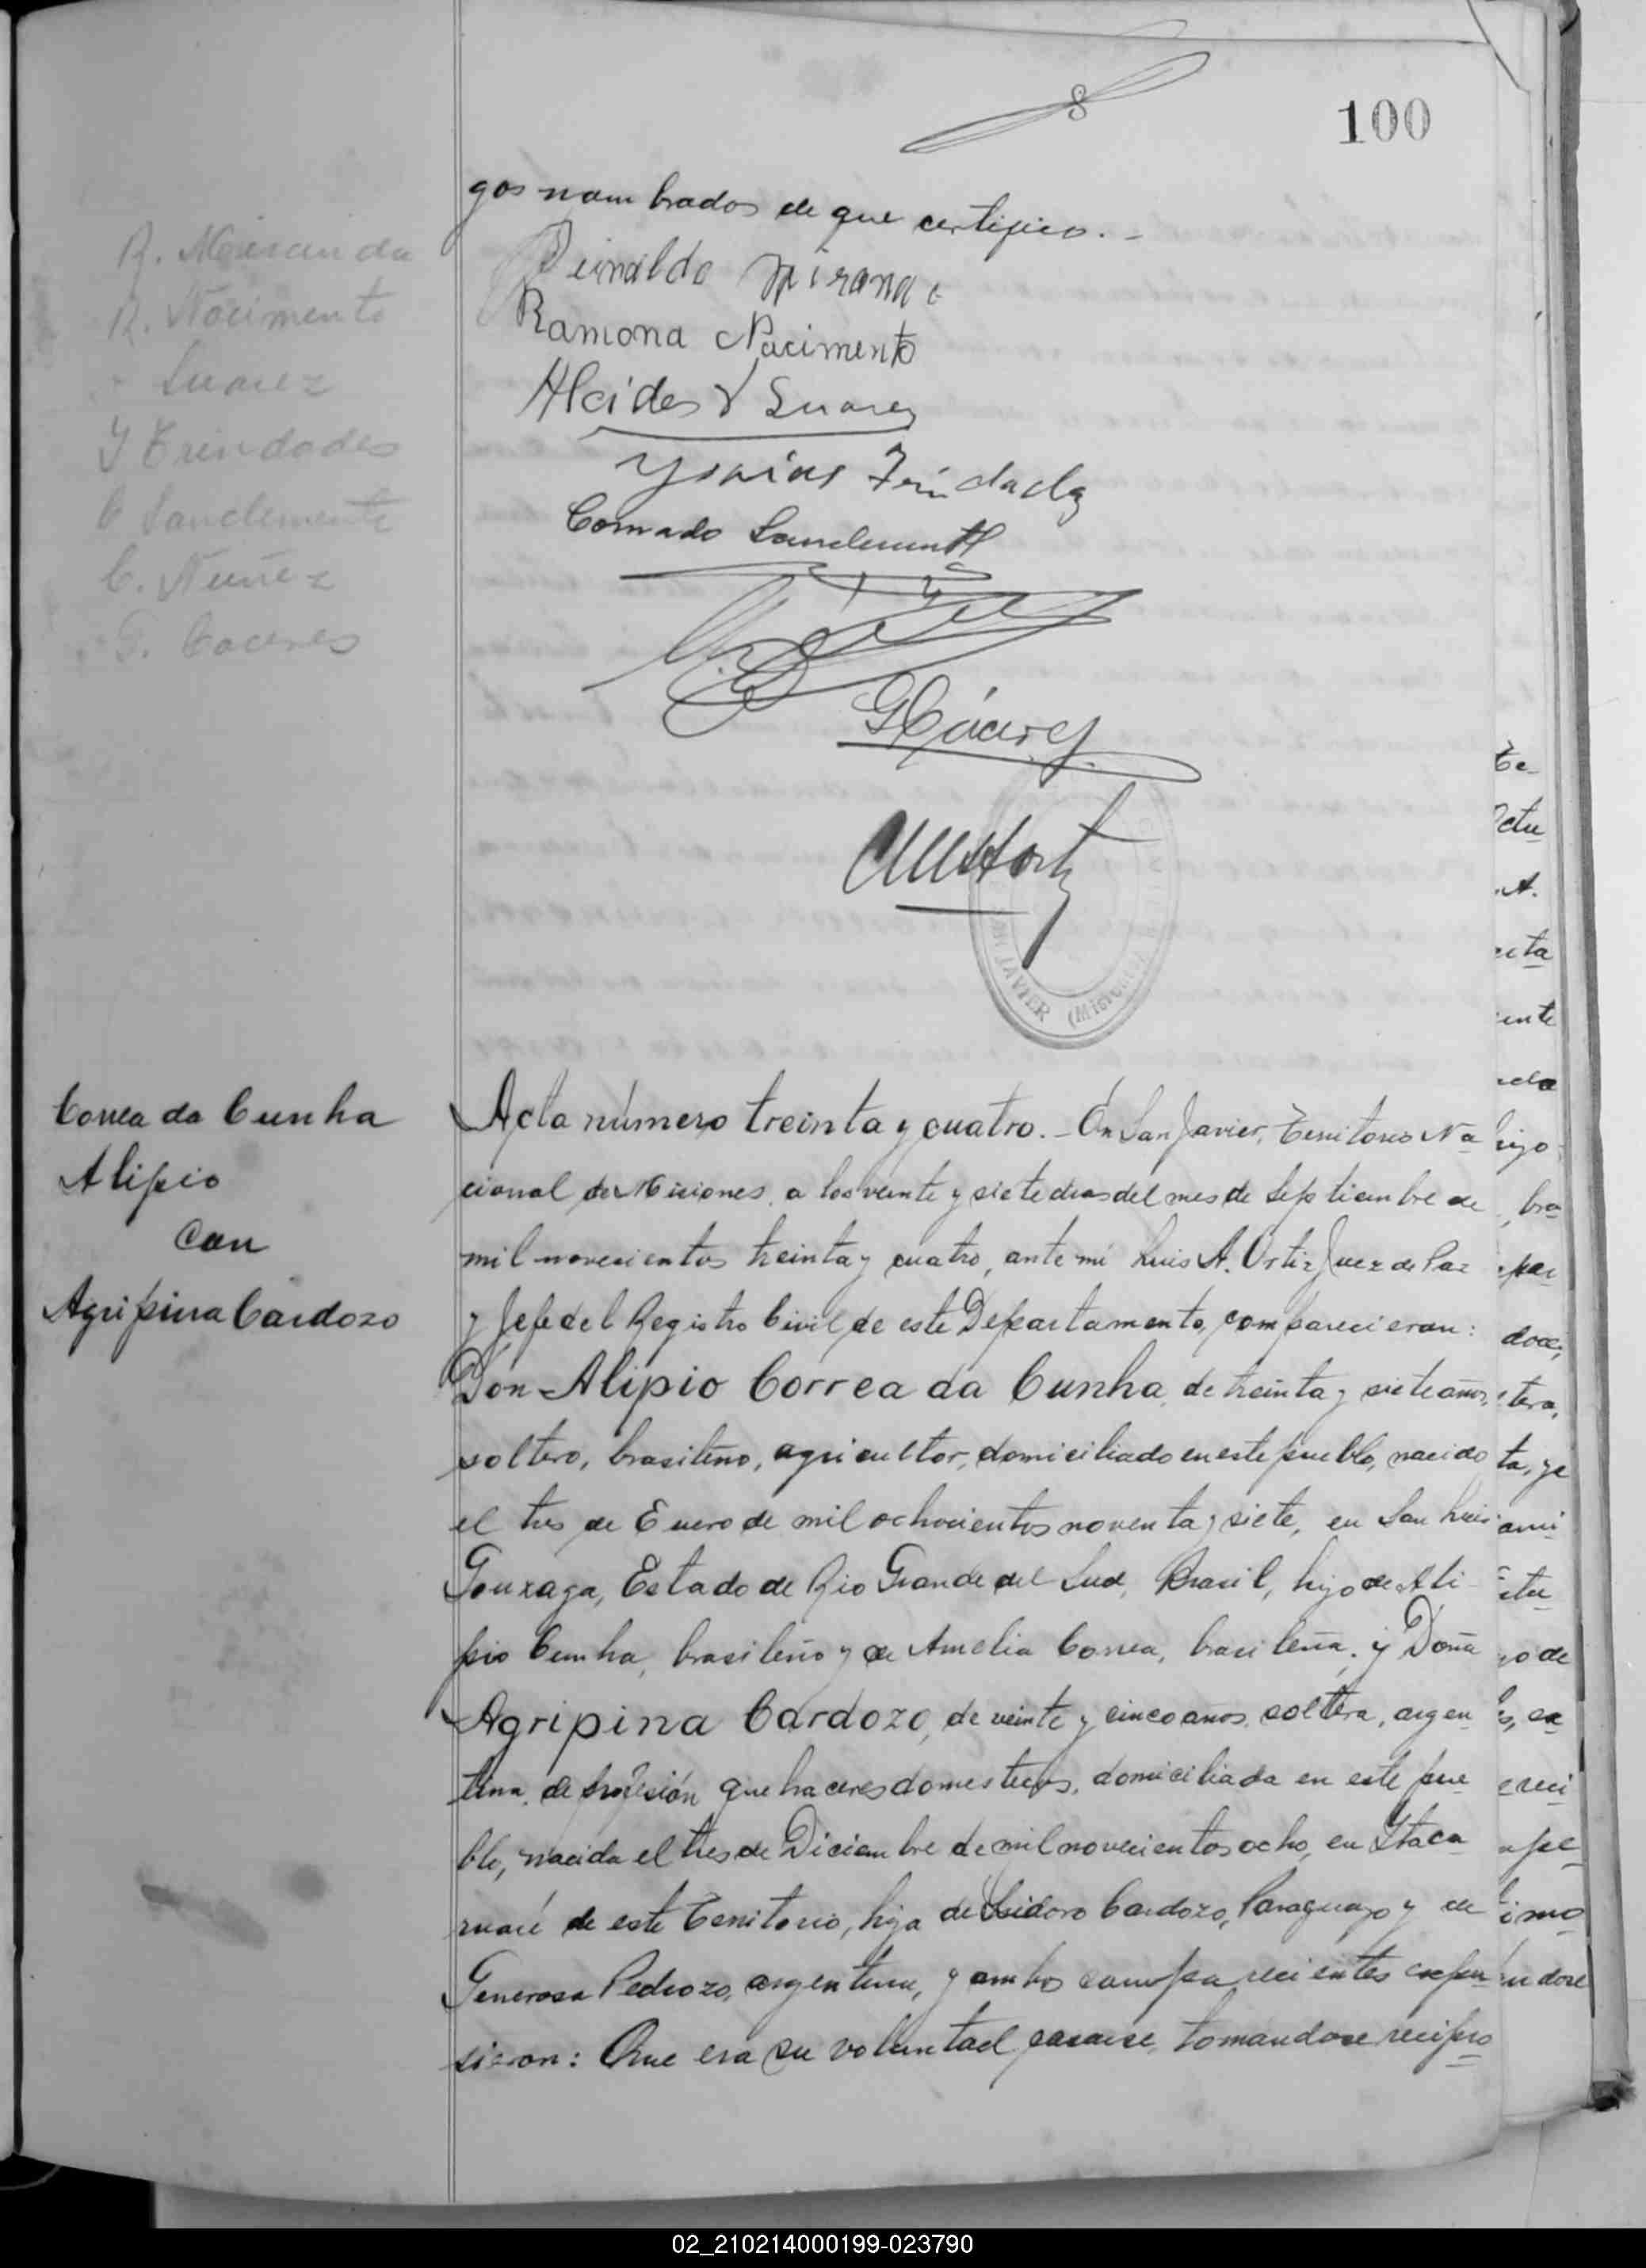 100
gos nombrados de que certifico. -
R. Miranda
Reinaldo Miranda
R. Nacimento
Ramona Nacimento
Suarez
Alcides V Suarez
Y Trindades
Ysaias Trindade
C Sanclemente
Conrado Sanclemente
C. Nuñez
G. Caceres
GCáceres
SAN JAVIER (Misiones)
Correa da Cunha
Alipio
con
Agripina Cardozo
Acta número treinta y cuatro. - En San Javier, Territorio Na
cional de Misiones, a los veinte y siete dias del mes de Septiembre de
mil novecientos treinta y cuatro, ante mi Luis A. Ortiz Juez de Paz
y Jefe del Registro Civil de este Departamento, comparecieron:
Don Alipio Correa da Cunha, de treinta y siete años,
soltero, brasileño, agricultor, domiciliado en este pueblo, nacido
el tres de Enero de mil ochocientos noventa y siete, en San Luis
Gonzaga, Estado de Rio Grande del Sud, Brasil, hijo de Ali-
pio Cunha, brasileño y de Amelia Correa, brasileña. y Doña
Agripina Cardozo, de veinte y cinco años, soltera, argen
tina, de profesión quehaceres domesticos, domiciliada en este pue
blo, nacida el tres de Diciembre de mil novecientos ocho, en Itaca
ruaré de este Territorio, hija de Isidoro Cardozo, Paraguayo y de
Generosa Pedrozo, argentina, y ambos comparecientes expu
sieron: Que era su voluntad casarse, tomandose recipro
02_210214000199-023790